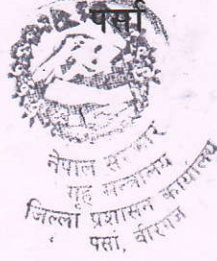 पर्सा
नेपाल सरकार
गृह मन्त्रालय
जिल्ला प्रशासन कार्यालय
पर्सा, वीरगंज